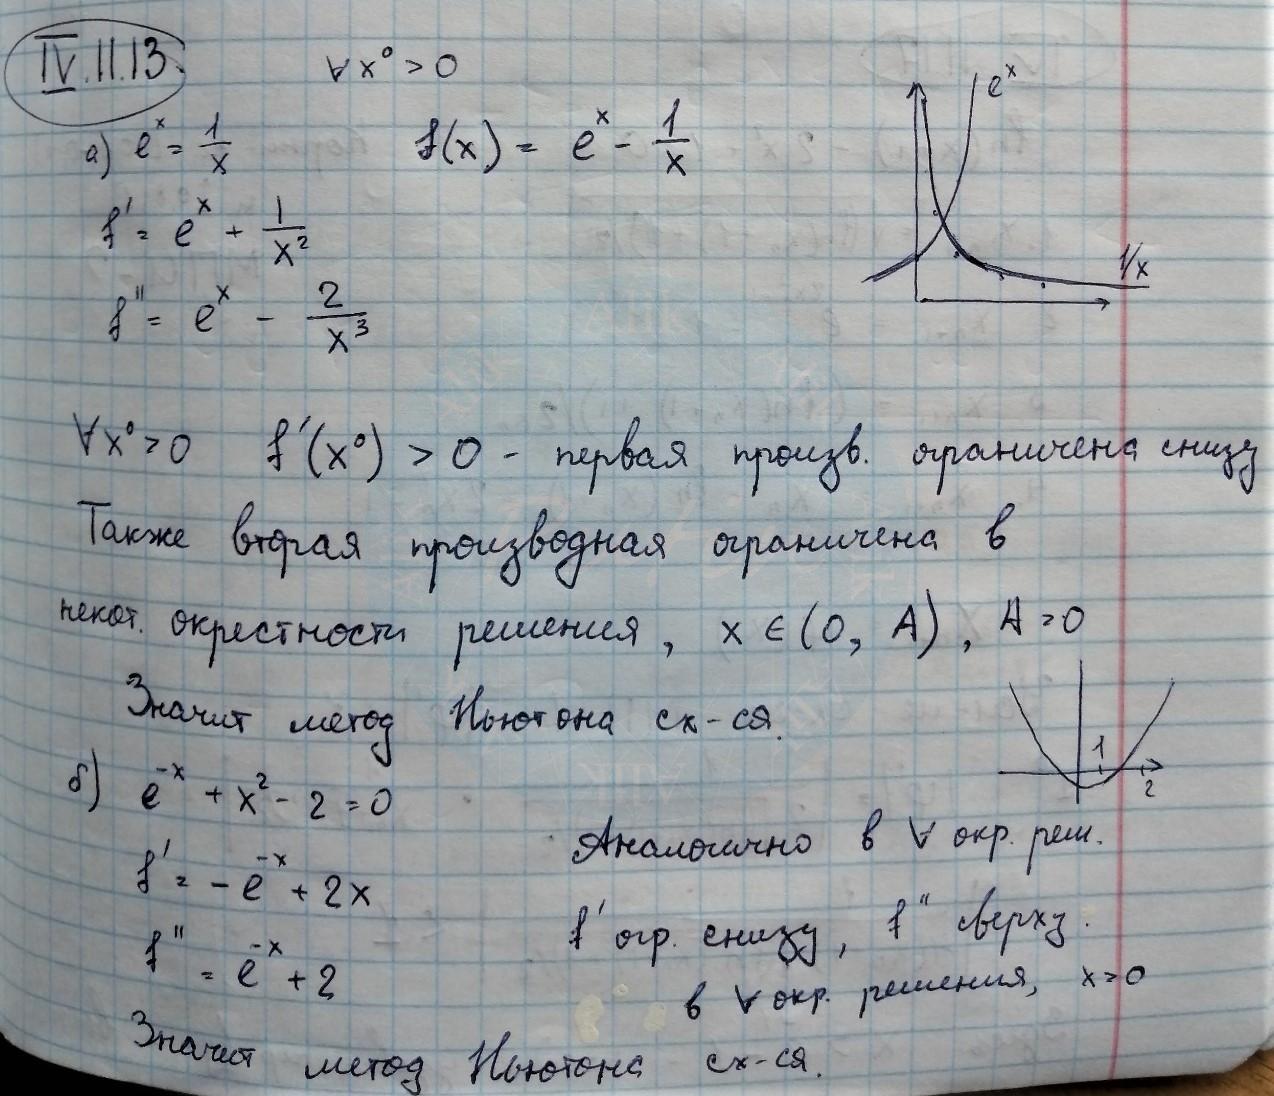 IV.11.13.
∀ x⁰ > 0
а) eˣ = 1/x f(x) = eˣ - 1/x
f' = eˣ + 1/x²
f'' = eˣ - 2/x³
eˣ
1/x
∀x⁰ > 0 f'(x⁰) > 0 - первая произв. ограничена снизу
Также вторая производная ограничена в
некот. окрестности решения, x ∈ (0, A), A > 0
Значит метод Ньютона сх-ся.
б) e⁻ˣ + x² - 2 = 0
1
2
f' = -e⁻ˣ + 2x
f'' = e⁻ˣ + 2
Аналогично в ∀ окр. реш.
f' огр. снизу, f'' сверху.
в ∀ окр. решения, x > 0
Значит метод Ньютона сх-ся.